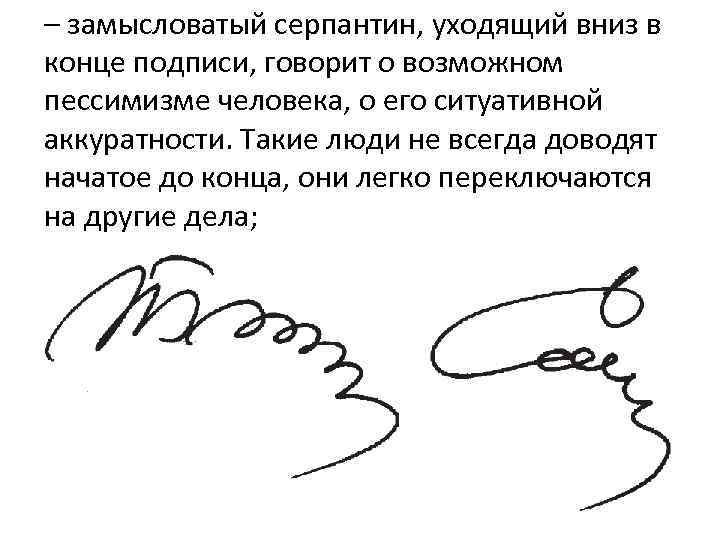 – замысловатый серпантин, уходящий вниз в
конце подписи, говорит о возможном
пессимизме человека, о его ситуативной
аккуратности. Такие люди не всегда доводят
начатое до конца, они легко переключаются
на другие дела;